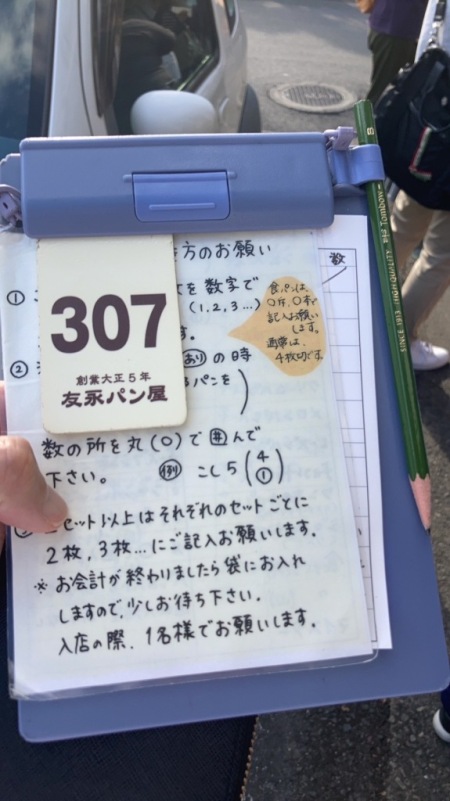 方のお願い
数
① を数字で
(1,2,3…)
食パンは、
○斤、○本で
記入お願い
します。
通常は、
4枚切です。
307
創業大正5年
友永パン屋
す。
② あり の時
るパンを
数の所を丸(○)で囲んで
下さい。 例 こし5(4 ①)
セット以上はそれぞれのセットごとに
2枚、3枚…にご記入お願いします。
※お会計が終わりましたら袋にお入れ
しますので、少しお待ち下さい。
入店の際、1名様でお願いします。
B